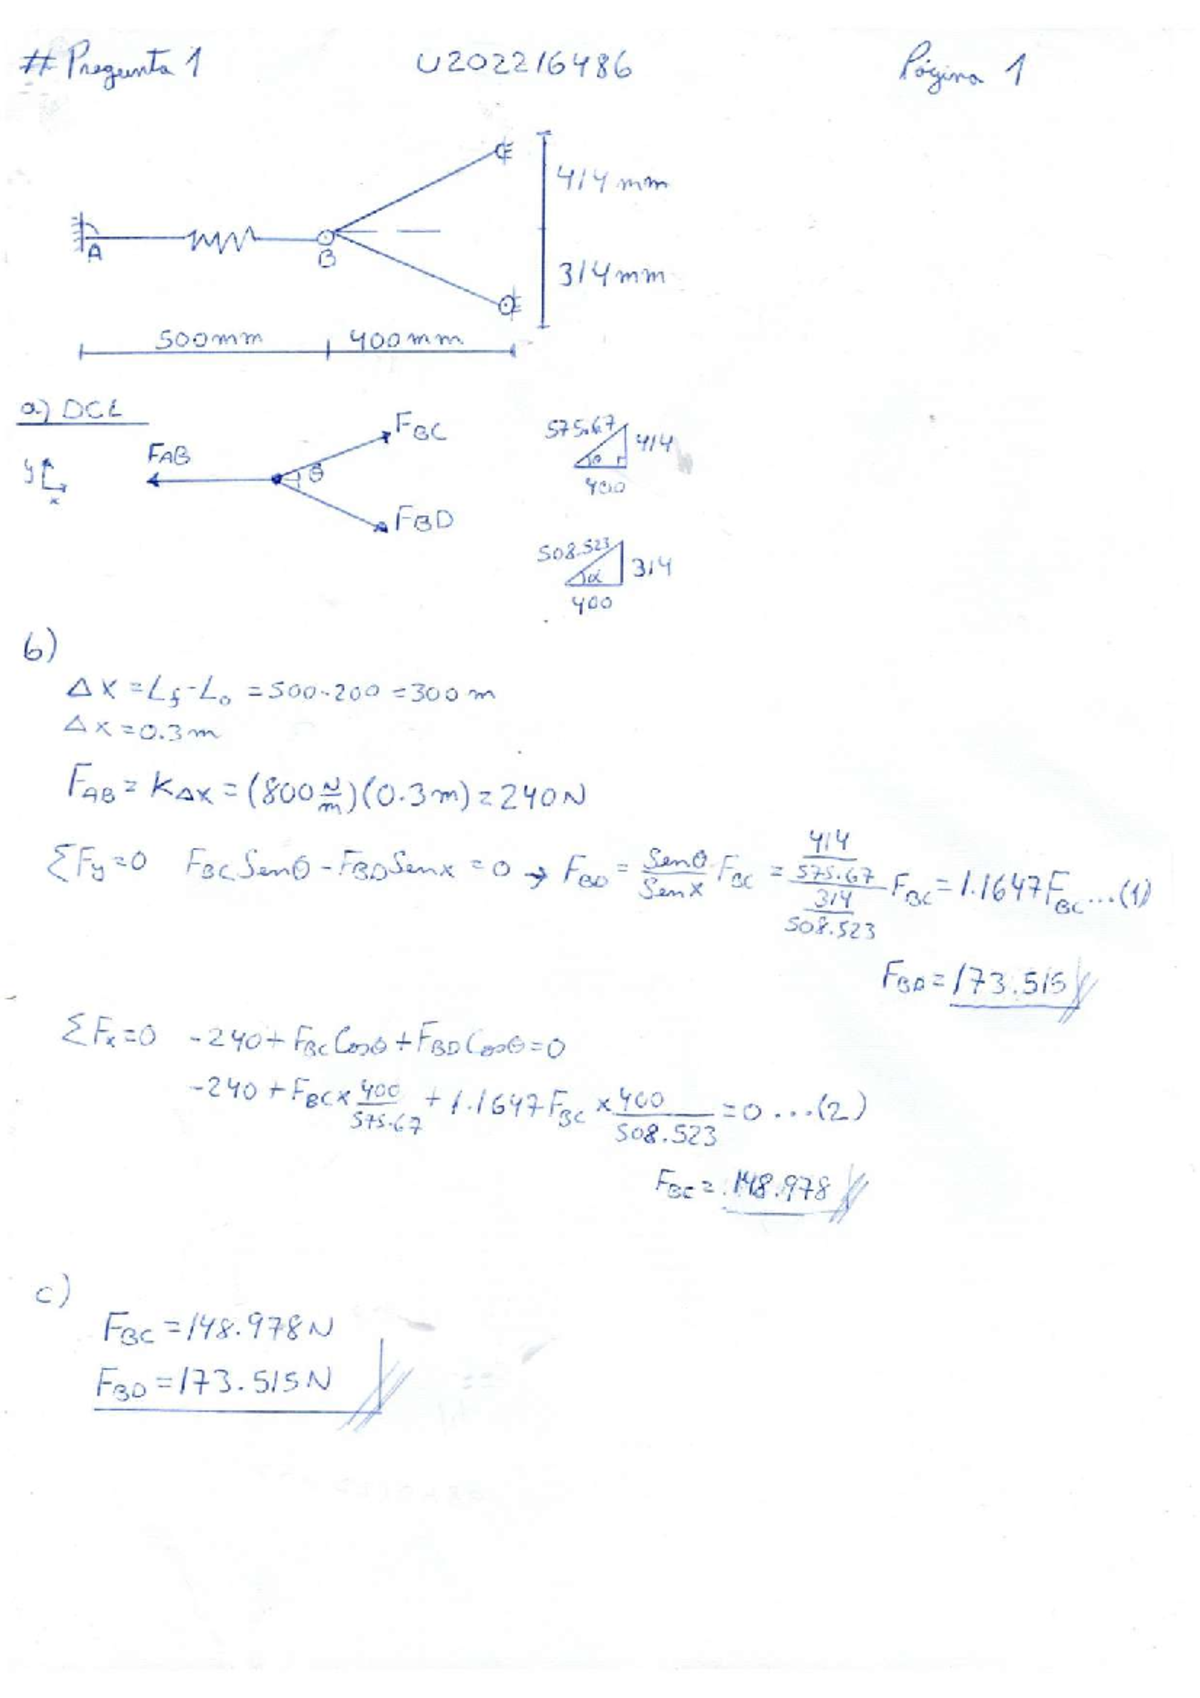 # Pregunta 1 U202216486 Página 1
414 mm
A B
314 mm
500mm 400mm
a) DCL
y x FAB FBC θ FBD
575.67 414 θ 400
508.523 314 α 400
b)
Δx = Lf - Lo = 500-200 = 300 m
Δx = 0.3m
FAB = KΔx = (800 N/m)(0.3m) = 240N
ΣFy=0 FBC Senθ - FBD Senx = 0 → FBD = Senθ/Senx FBC = (414/575.67)/(314/508.523) FBC = 1.1647 FBC ...(1)
FBD = 173.515
ΣFx=0 -240 + FBC Cosθ + FBD Cosθ = 0
-240 + FBC x 400/575.67 + 1.1647 FBC x 400/508.523 = 0 ...(2)
FBC = 148.978
c)
FBC = 148.978 N
FBD = 173.515 N